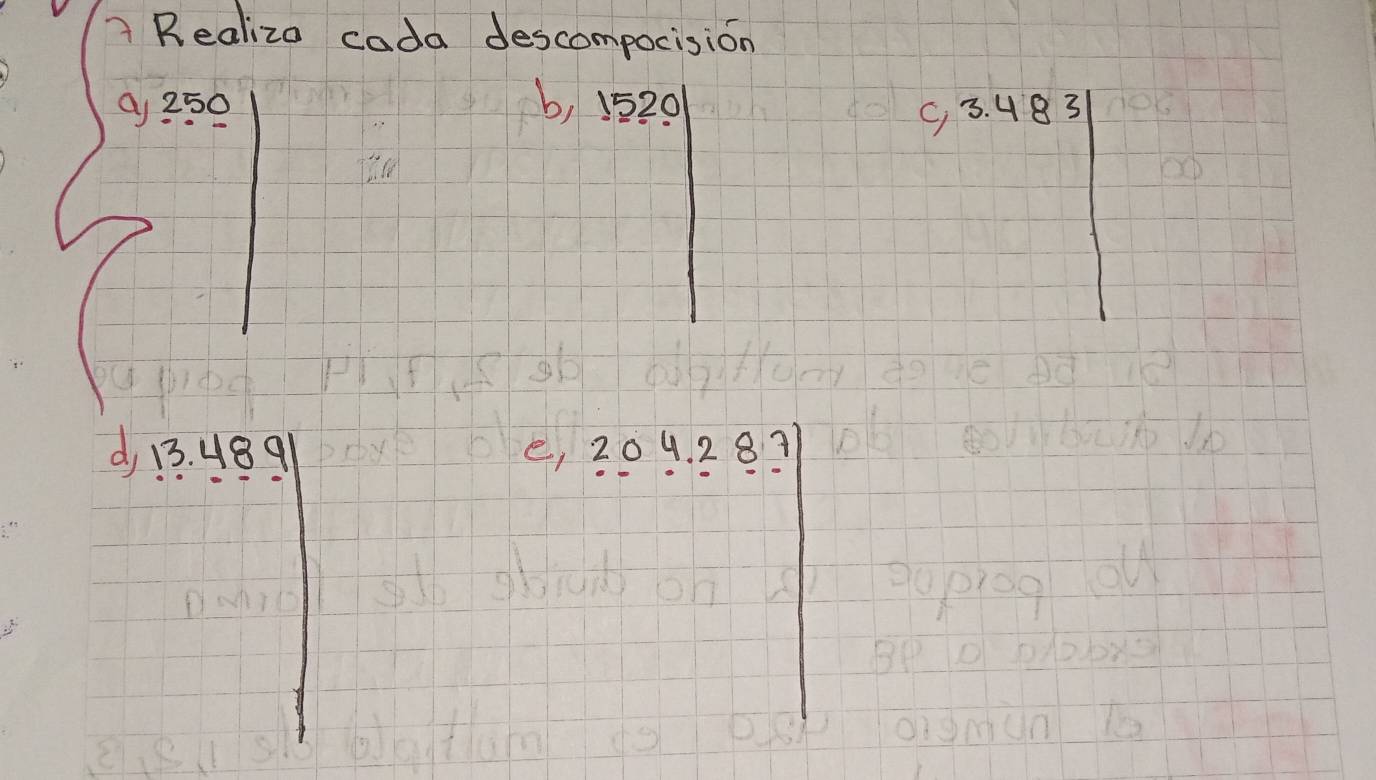 7 Realiza cada descompocisión
a, 250
b, 1520
c, 3.483
d, 13.489
e, 204.287